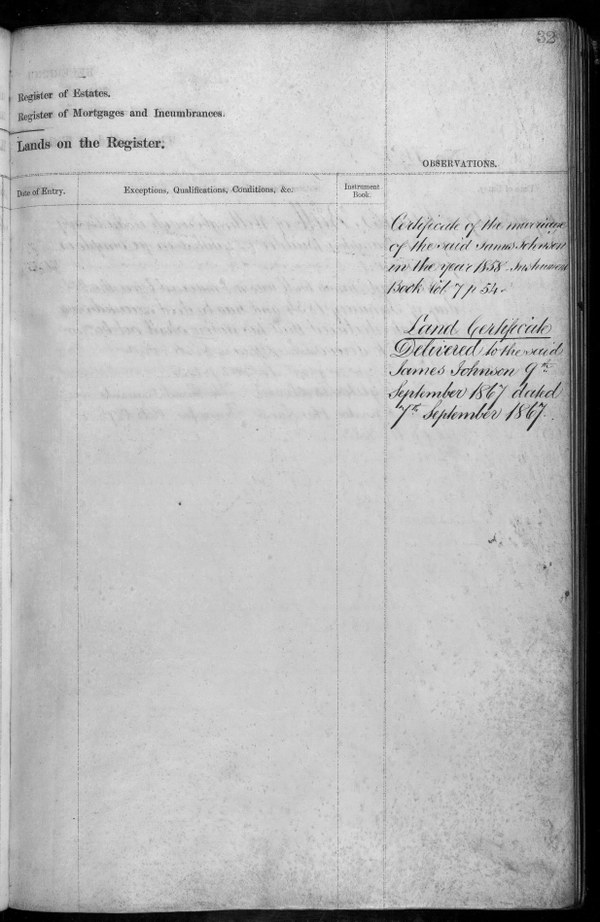 32
Register of Estates.
Register of Mortgages and Incumbrances.
Lands on the Register.
OBSERVATIONS.
Date of Entry.
Exceptions, Qualifications, Conditions, &c.
Instrument
Book.
Certificate of the marriage
of the said James Johnson
in the year 1858. Instrument
Book fol. 7 p 54.
Land Certificate
Delivered to the said
James Johnson 9th
September 1867 dated
7th September 1867.